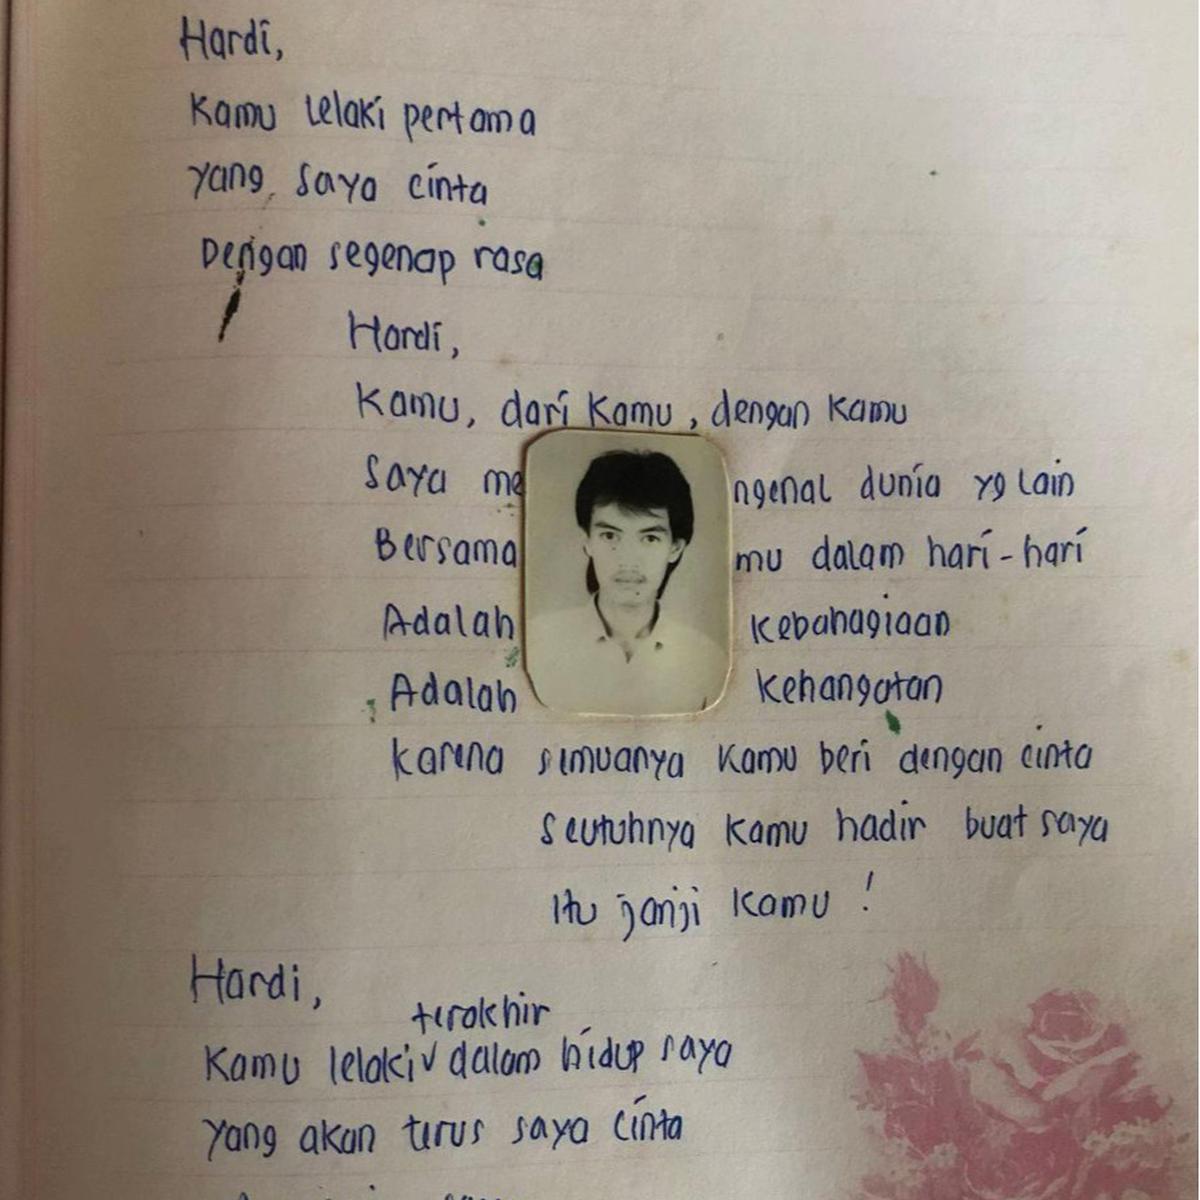 Hardi,
Kamu lelaki pertama
yang saya cinta
Dengan segenap rasa
Hardi,
Kamu, dari kamu, dengan kamu
Saya mengenal dunia yg lain
Bersamamu dalam hari-hari
Adalah kebahagiaan
Adalah kehangatan
karena semuanya kamu beri dengan cinta
Seutuhnya kamu hadir buat saya
Itu janji kamu !
Hardi,
terakhir
Kamu lelaki dalam hidup saya
yang akan terus saya cinta